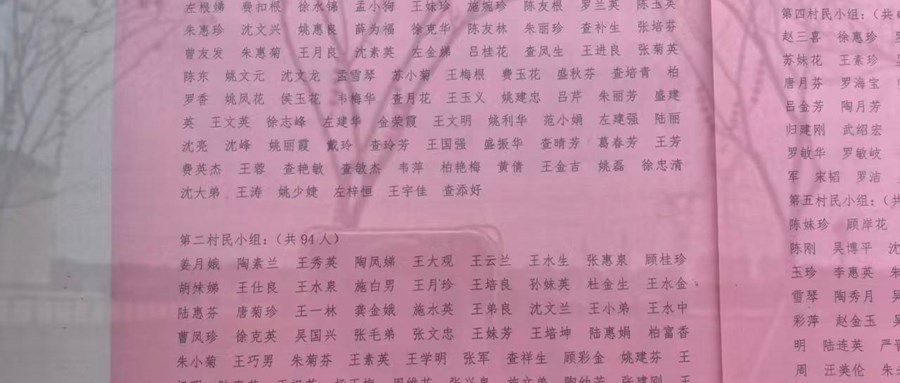 左根娣 费扣根 徐水锦 孟小狗 王妹珍 施婉珍 陈友根 罗兰英 陈玉英
朱惠珍 沈文兴 姚惠良 薛为福 徐克华 陈友林 朱丽珍 查补生 张培芬
曾友发 朱惠菊 王月良 沈素英 左金娣 吕桂花 查凤生 王进良 张菊英
陈东 姚文元 沈文龙 孟雪琴 苏小菊 王梅根 费玉花 盛秋芬 查培青 柏
罗香 姚凤花 侯玉花 韦梅华 查月花 王玉义 姚建忠 吕芹 朱丽芳 盛建
英 王文英 徐志峰 左建华 金荣霞 王文明 姚利华 范小娟 左建强 陆丽
沈亮 沈峰 姚丽霞 戴玲 查玲芳 王国强 盛振华 查晴芳 葛春芳 王芳
费英杰 王蓉 查艳敏 查敏杰 韦萍 柏艳梅 黄倩 王金吉 姚磊 徐忠清
沈大弟 王涛 姚少婕 左梓恒 王宇佳 查添好
第二村民小组：（共94人）
姜月娥 陶素兰 王秀英 陶凤娣 王大观 王云兰 王水生 张惠泉 顾桂珍
胡妹娣 王仕良 王水泉 施白男 王月珍 王培良 孙妹英 杜金生 王水金
陆惠芬 唐菊珍 王一林 龚金娥 施水英 王弟良 沈文兰 王小弟 王水中
曹凤珍 徐克英 吴国兴 张毛弟 张文忠 王妹芳 王培坤 陆惠娟 柏富香
朱小菊 王巧男 朱菊芬 王素英 王学明 张军 查祥生 顾彩金 姚建芬 王
第四村民小组：（共
赵三喜 徐惠珍
苏妹花 王素珍
唐月芬 罗海宝
吕金芳 陶月芳
归建刚 武绍宏
罗敏华 罗敏岐
军 宋韬 罗洁
第五村民小组：（共
陈妹珍 顾岸花
陈刚 吴博平 沈
玉珍 李惠英
雪琴 陶秀月
彩萍 赵金玉
明 陆连英 严
周 汪美伦